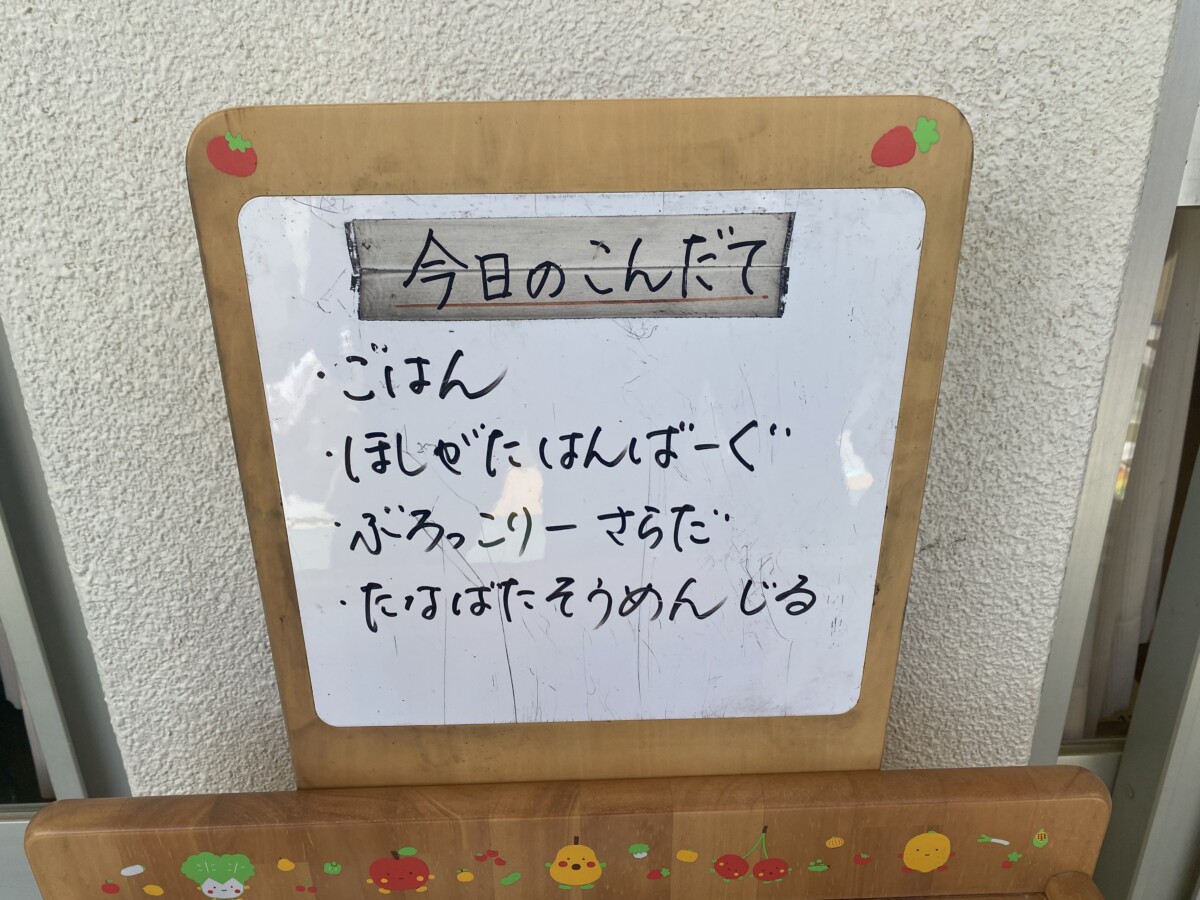 今日のこんだて
・ごはん
・ほしがた はんばーぐ
・ぶろっこりー さらだ
・たなばたそうめん じる